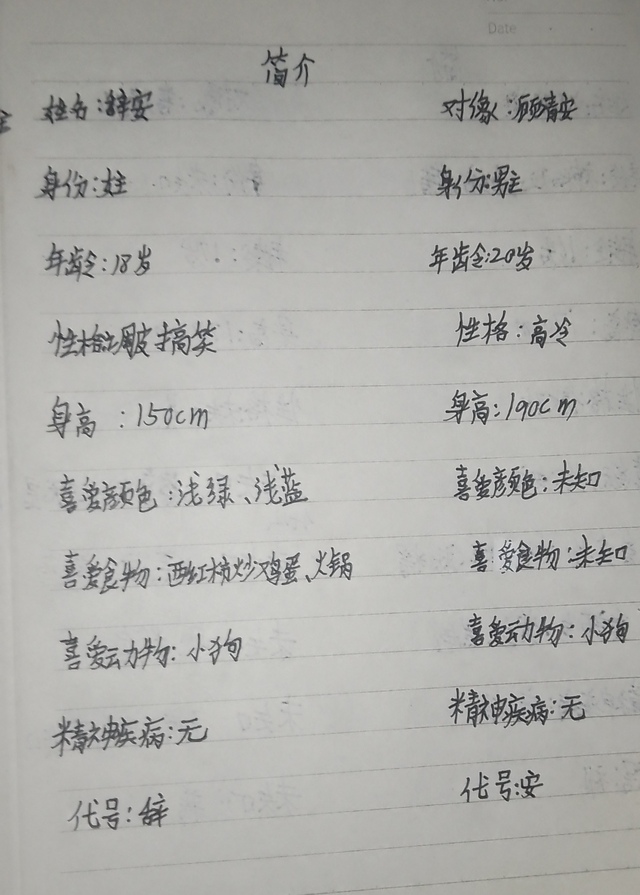 Date
简介
姓名:辞安 对像:顾清安
身份:女主 身份:男主
年龄:18岁 年龄:20岁
性格:调皮搞笑 性格:高冷
身高:150cm 身高:190cm
喜爱颜色:浅绿、浅蓝 喜爱颜色:未知
喜爱食物:西红柿炒鸡蛋、火锅 喜爱食物:未知
喜爱动物:小狗 喜爱动物:小狗
精神疾病:无 精神疾病:无
代号:辞 代号:安